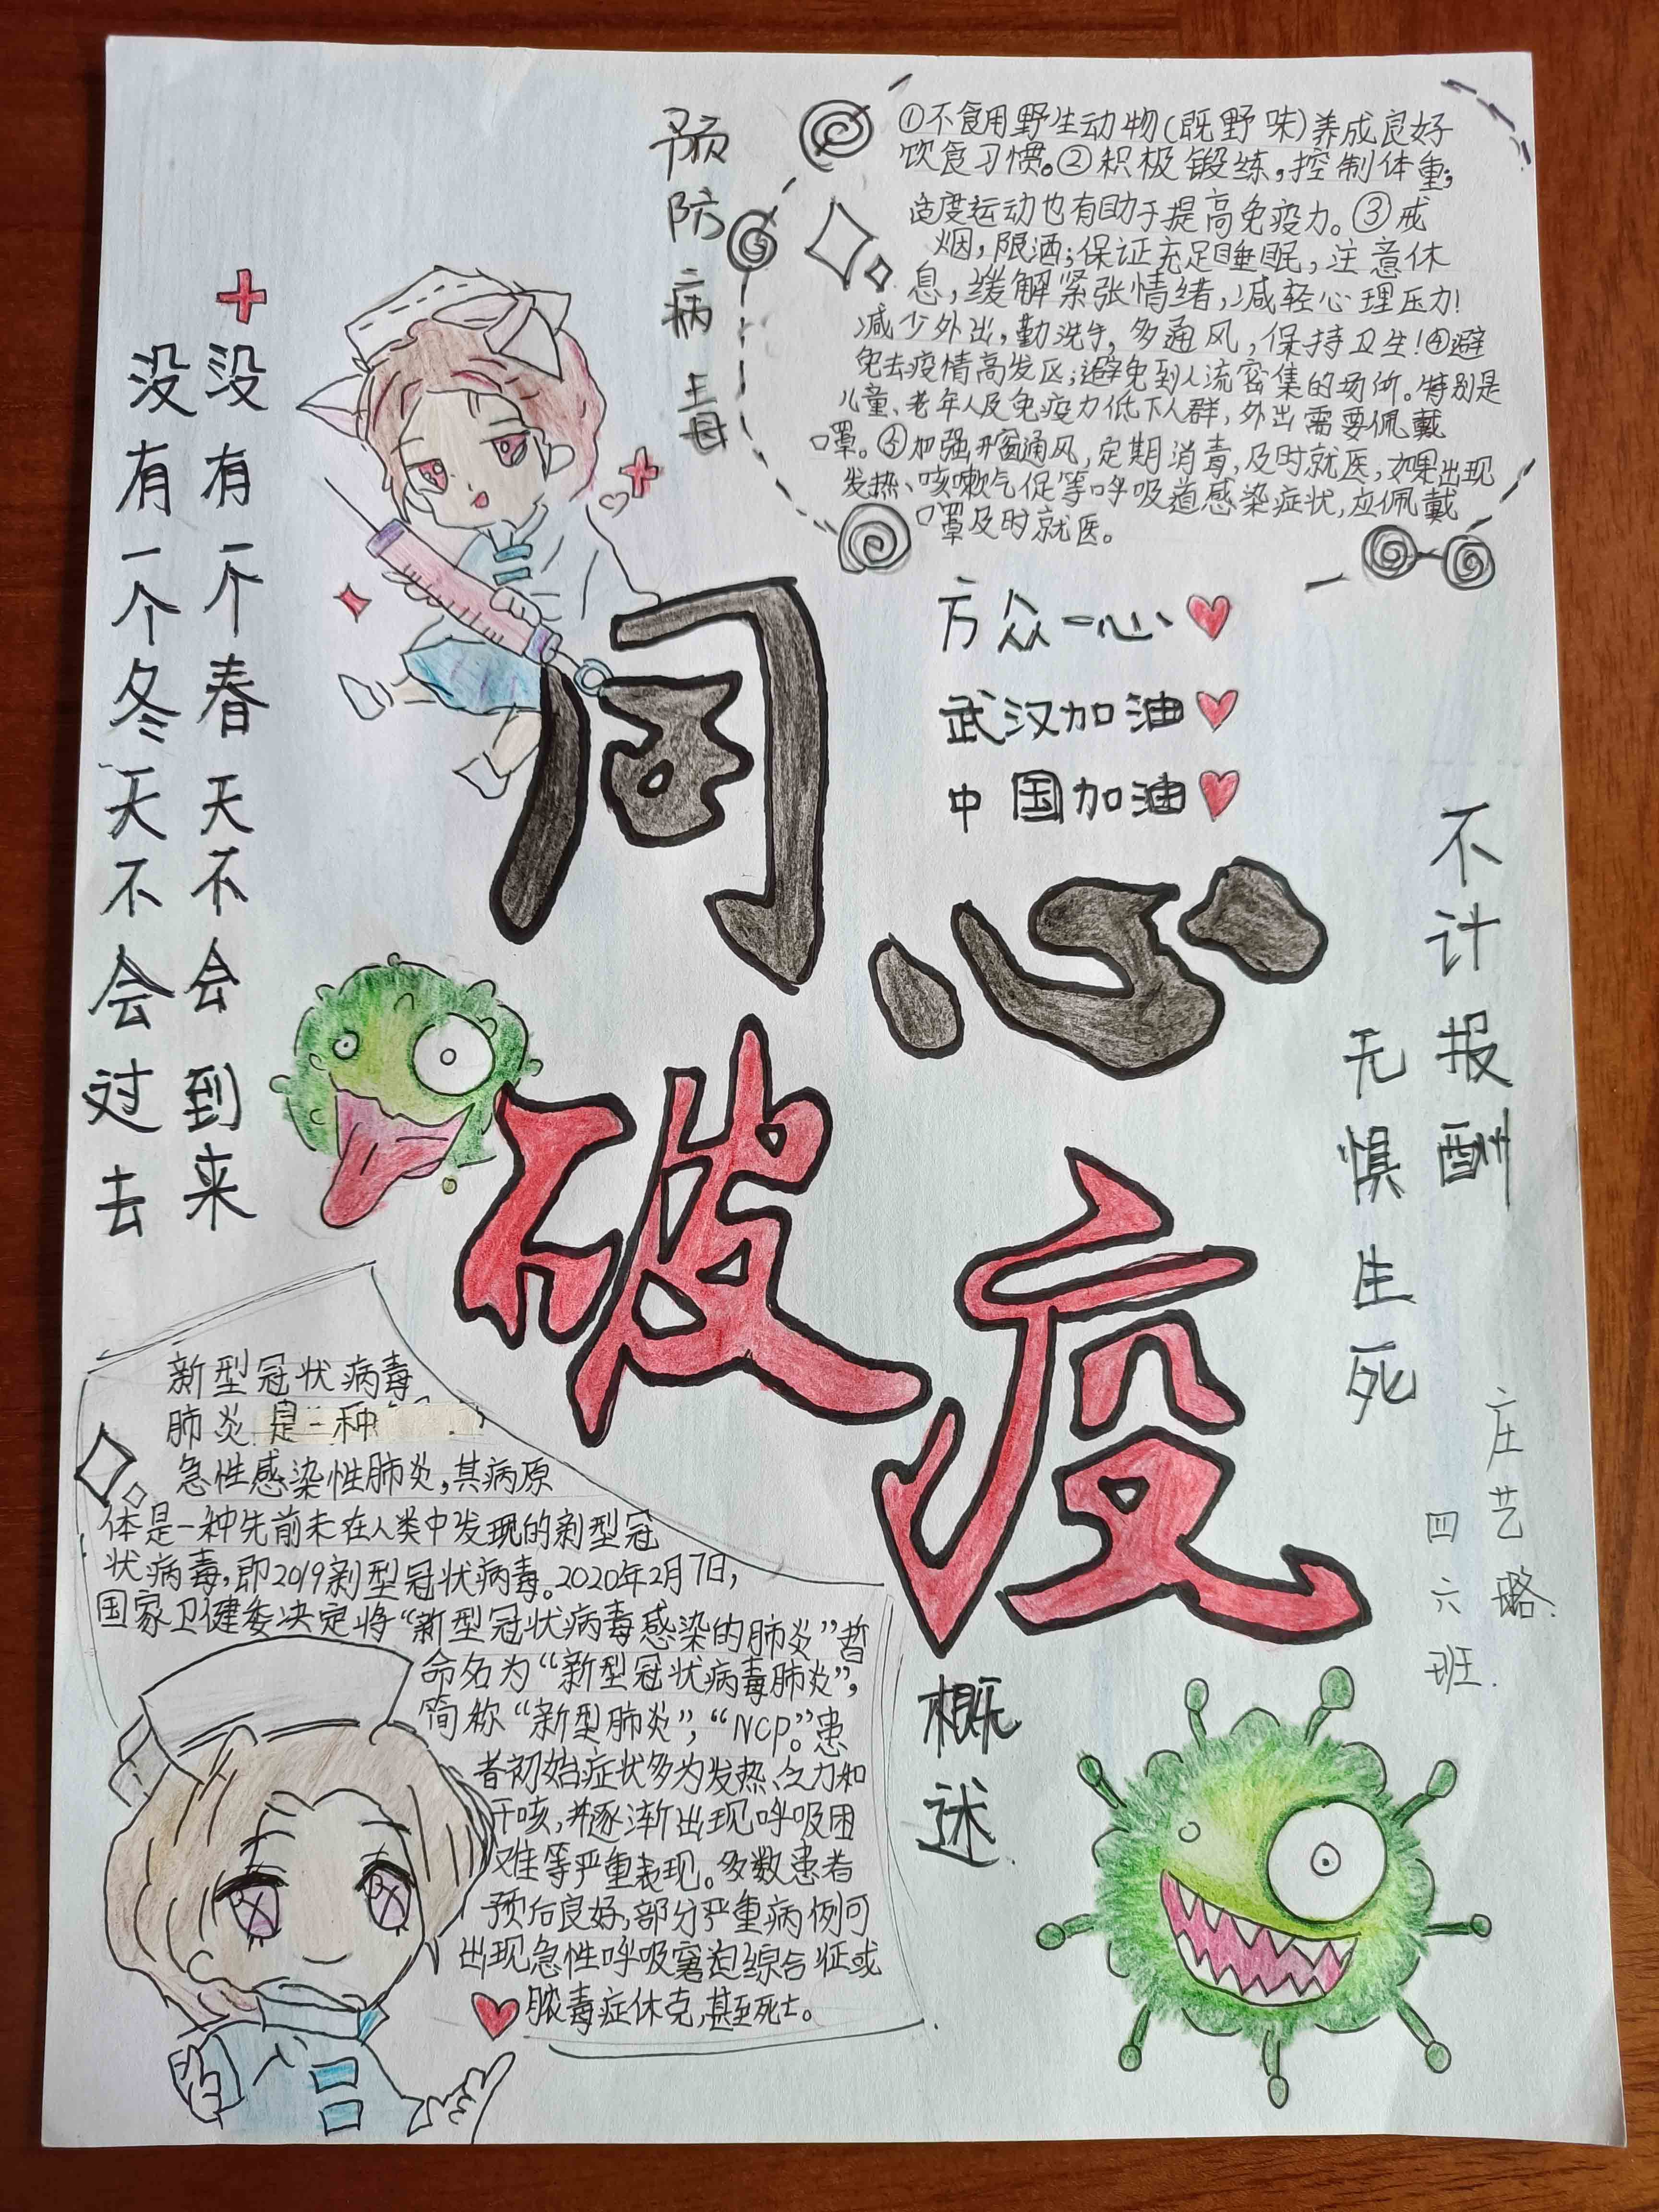 预防病毒
①不食用野生动物(既野味)养成良好
饮食习惯。②积极锻练,控制体重;
适度运动也有助于提高免疫力。③戒
烟,限酒;保证充足睡眠,注意休
息,缓解紧张情绪,减轻心理压力!
减少外出,勤洗手,多通风,保持卫生!④避
免去疫情高发区;避免到人流密集的场所。特别是
儿童、老年人及免疫力低下人群,外出需要佩戴
口罩。⑤加强开窗通风,定期消毒,及时就医,如果出现
发热、咳嗽气促等呼吸道感染症状,应佩戴
口罩及时就医。
没有一个冬天不会过去
没有一个春天不会到来
方众一心
武汉加油
中国加油
同心
破疫
不计报酬
无惧生死
庄艺璐.
四六班.
新型冠状病毒
肺炎是一种
急性感染性肺炎,其病原
体是一种先前未在人类中发现的新型冠
状病毒,即2019新型冠状病毒。2020年2月7日,
国家卫健委决定将“新型冠状病毒感染的肺炎”暂
命名为“新型冠状病毒肺炎”,
简称“新型肺炎”,“NCP。”患
者初始症状多为发热、乏力和
干咳,并逐渐出现呼吸困
难等严重表现。多数患者
预后良好,部分严重病例可
出现急性呼吸窘迫综合征或
脓毒症休克,甚至死亡。
概述.